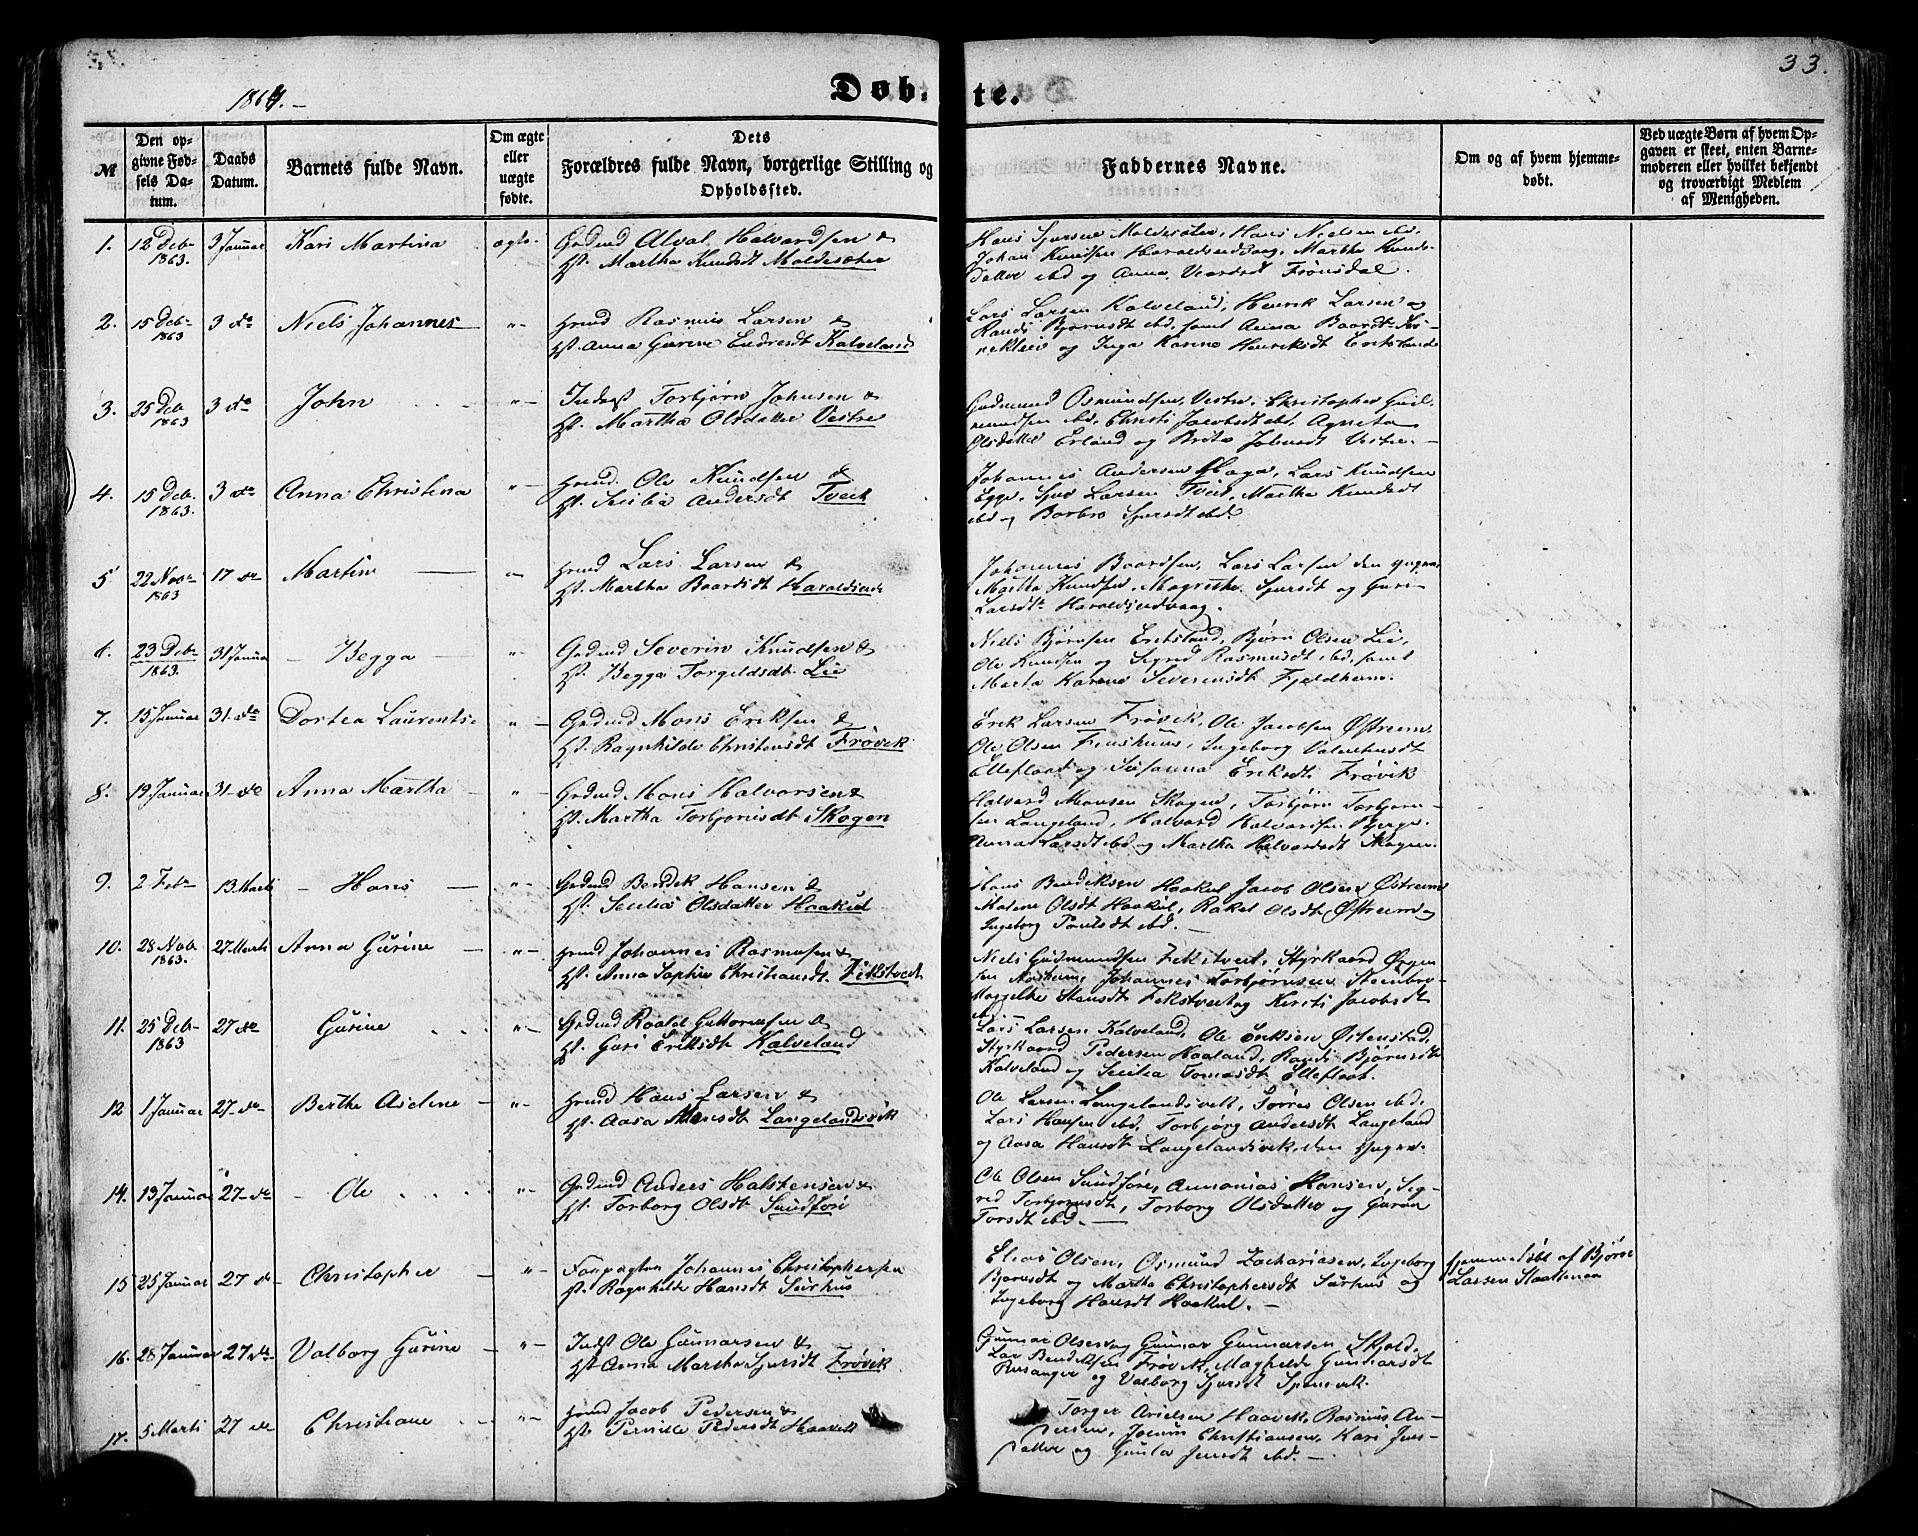 33.
1864.-
Døbte.
№
Den opgivne Fødsels Datum.
Daabs Datum.
Barnets fulde Navn.
Om ægte eller uægte fødte.
Dets Forældres fulde Navn, borgerlige Stilling og Opholdssted.
Faddernes Navne.
Om og af hvem hjemmedøbt.
Ved uægte Børn af hvem Opgaven er skeet, enten Barnemoderen eller hvilket bekjendt og troværdigt Medlem af Menigheden.
1. 12 Deb 1863. 3 Januar Kari Martina ægte.
Gdmd Halvardsen &
Hst. Martha Knudsdt Moldesæter
Hans Sjursen Moldesæter, Hans Nielsen ibd.
Johan Knudsen Haraldseidvaag, Martha Knuds-
datter ibd og Anna Frønsdal.
2. 15 Deb 1863 3 do Niels Johannes -"-
Hmd Rasmus Larsen &
Hst. Anna Gurine Endresdt Kalveland
Lars Larsen Kalveland, Henrik Larsen og
Randi Bjørnsdt ibd, samt Anna Baardt
og Inga Karine Henriksdt
3. 25 Deb 1863 3 do John -"-
Torbjørn Johnsen &
Hst. Martha Olsdatter Vestre
Gudmund Osmundsen Vestre, Christopher Gud-
mundsen ibd, Christi Jacobsdt ibd, Agneta
Olsdatter Erland og Brita Johnsdt Vestre. -
4. 15 Deb. 1863. 3 do Anna Christina -"-
Hmd. Ole Knudsen &
Hst. Secilia Andersdt Tveit
Johannes Andersen Haga, Lars Knudsen
Egge, Sjur Larsen Tveit, Martha Knudsdt
ibd og Barbro Sjursdt ibd.
5 22 Nov 1863 17 do Martin -"-
Hmd Lars Larsen &
Hst. Martha Baardsdt Haraldseide
Johannes Baardsen, Lars Larsen den yngre
Martha Knudsen, Magrethe Sjursdt og Guri
Larsdt Haraldseidvaag.
6. 23 Deb 1863. 31 Januar - Begga -"-
Gdmd Severin Knudsen &
Hst. Begga Torgeldsdt. Lie
Niels Bjørnsen Bjørn Olsen Lie,
Ole Knudsen og Segred Rasmusdt ibd, samt
Marta Karene Severinsdt Fjeldheim.
7. 15 Januar 31 do Dortea Laurentse -"-
Gdmd Mons Eriksen &
Hst. Ragnhilde Christensdt Frøvik
Erik Larsen Frøvik, Ole Jacobsen Østreim
Ole Olsen Ingeborg
Elleflaat og Susanna Eriksdt. Frøvik
8. 19 Januar 31 do Anna Martha -"-
Gdmd Mons Halvorsen &
Hst. Martha Torbjørnsdt Skogen
Halvard Monsen Skogen, Torbjørn Torbjørn-
sen Langeland, Halvard Halvardsen Bjerge,
Anna Larsdt ibd og Martha Halvardsdt Skogen.
9. 2 Feb 13. Marti - Hans -"-
Gdmd Bendik Hansen &
Hst. Secilia Olsdatter Haakul
Hans Bendiksen Haakul Jacob Olsen Østreim
Malene Olsdt Haakul, Rakel Olsdt Østreim og
Ingeborg Poulsdt ibd. -
10. 28 Nob. 1863. 27. Marti Anna Gurine -"-
Hmd Johannes Rasmusen &
Hst. Anna Sophie Christiansdt. Fikstveit
Niels Gudmundsen Fikstveit, Styrkaard Ørgen-
sen Johannes Torbjørnsen Steinbro
Maggelke Hansdt Fikstveit og Kersti Jacobsdt
11. 25 Deb 1863 27 do Gurine -"-
Gdmd Roald Guttormsen &
Hst. Guri Eriksdt Kalveland
Lars Larsen Kalveland, Ole Eriksen Østenstad,
Styrkaard Pedersen Haaland, Randi Bjørnsdt
Kalveland og Secilia Tomasdt Elleflaat.
12 1 Januar 27 do Berthe Aseline -"-
Hmd Hans Larsen &
Hst. Aasa Monsdt Langelandsvik
Ole Larsen Langelandsvik, Torres Olsen ibd.
Lars Hansen ibd, Torbjørg Andersdt Langeland
og Aasa Hansdt Langelandsvik, den yngre.
14. 13 Januar 27 do - Ole -"-
Gdmd Anders Halstensen &
Hst. Torborg Olsdt Sundføre
Ole Olsen Sundføre, Annanias Hansen, Seg-
red Torbjørnsdt, Torborg Olsdatter og Guran
Torsdt ibd. -
15 25 Januar 27 do Christopher -"-
Forpagter Johannes Christophersen
Hst. Ragnhilde Hansdt Seirhus
Elias Olsen, Osmund Zachariasen, Ingeborg
Bjørnsdt og Martha Christophersdt Særhus og
Ingeborg Hansdt Haakul. -
Hjemmedøbt af Bjørn
Larsen
16. 28 Januar 27 do Valborg Gurine -"-
Indst Ole Gunnarsen &
Hst. Anna Martha Sjursdt Frøvik
Gunnar Olsen og Gunnar Gunnarsen Skjold,
Lar Bendiksen Frøvik, Maghilde Gunnarsdt
og Valborg Sjursdt
17. 5 Marti 27 do Christiane -"-
Hmd Jacob Pedersen &
Hst. Pernille Pedersdt Haavik
Torger Haavik, Rasmus An-
dersen, Christiansen, Kari Jens-
datter og Gunla Jensdt ibd. -